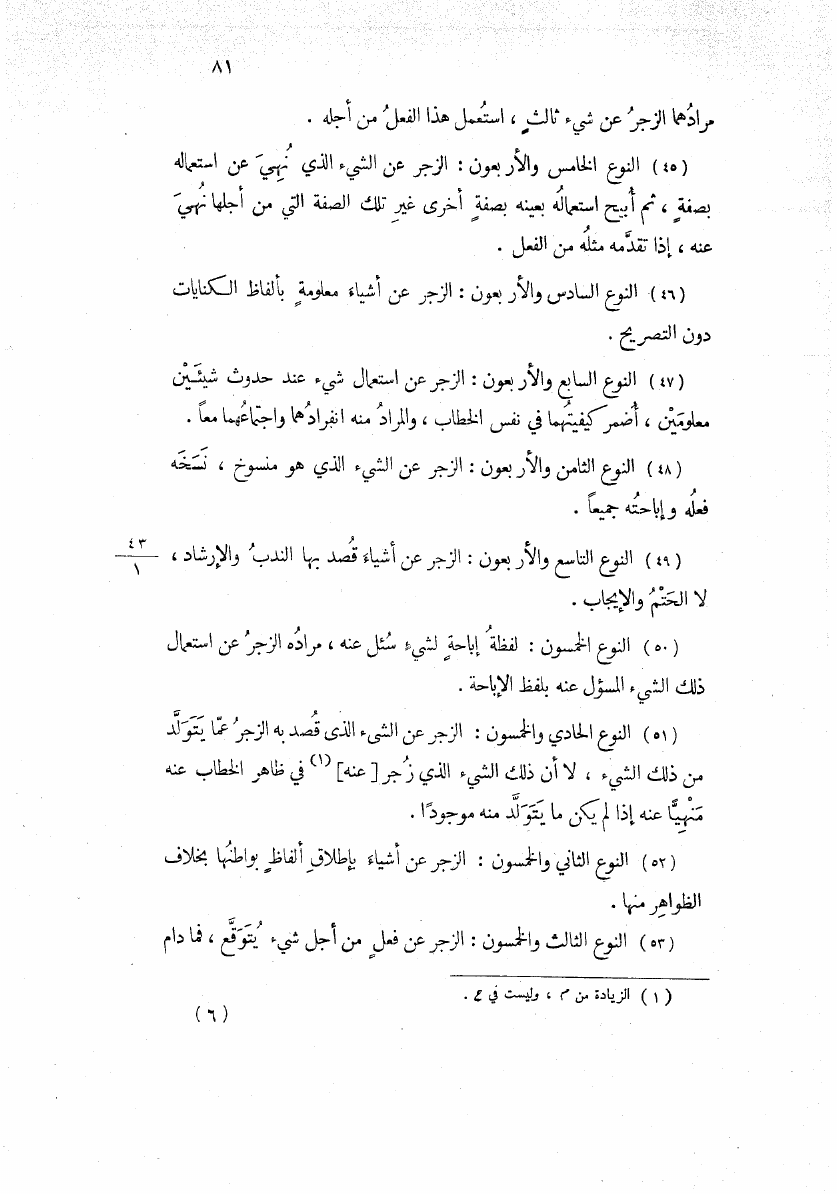 ٨١
مرادُهما الزجرُ عن شيء ثالثٍ ، استُعمل هذا الفعلُ من أجله .
(٤٥) النوع الخامس والأربعون : الزجر عن الشيء الذي نُهِيَ عن استعماله
بصفةٍ ، ثم أُبيح استعمالُه بعينه بصفةٍ أخرى غيرِ تلك الصفة التي من أجلها نُهيَ
عنه ، إذا تقدَّمه مثلُه من الفعل .
(٤٦) النوع السادس والأربعون : الزجر عن أشياءَ معلومةٍ بألفاظ الكنايات
دون التصريح .
(٤٧) النوع السابع والأربعون : الزجر عن استعمال شيء عند حدوث شيئَـيْن
معلومَيْن ، أُضمر كيفيتُهما في نفس الخطاب ، والمرادُ منه انفرادُهما واجتماعُهما معاً .
(٤٨) النوع الثامن والأربعون : الزجر عن الشيء الذي هو منسوخ ، نَسَخَه
فعلُه وإباحتُه جميعاً .
(٤٩) النوع التاسع والأربعون : الزجر عن أشياءَ قُصد بها الندبُ والإرشاد ،
٤٣
١
لا الحَتْمُ والإيجاب .
(٥٠) النوع الخمسون : لفظةُ إباحةٍ لشيءٍ سُئل عنه ، مرادُه الزجرُ عن استعمال
ذلك الشيء المسؤل عنه بلفظ الإباحة .
(٥١) النوع الحادي والخمسون : الزجر عن الشيء الذى قُصد به الزجرُ عمّا يَتَوَلَّد
من ذلك الشيء ، لا أن ذلك الشيء الذي زُجر [عنه] (١) في ظاهر الخطاب عنه
مَنْهِيًّا عنه إذا لم يكن ما يَتَوَلَّد منه موجودًا .
(٥٢) النوع الثاني والخمسون : الزجر عن أشياءَ بإطلاقِ ألفاظٍ بواطنُها بخلاف
الظواهِرِ منها .
(٥٣) النوع الثالث والخمسون : الزجر عن فعلٍ من أجل شيء يُتَوَقَّع ، فما دام
(١) الزيادة من م ، وليست في ع .
(٦)